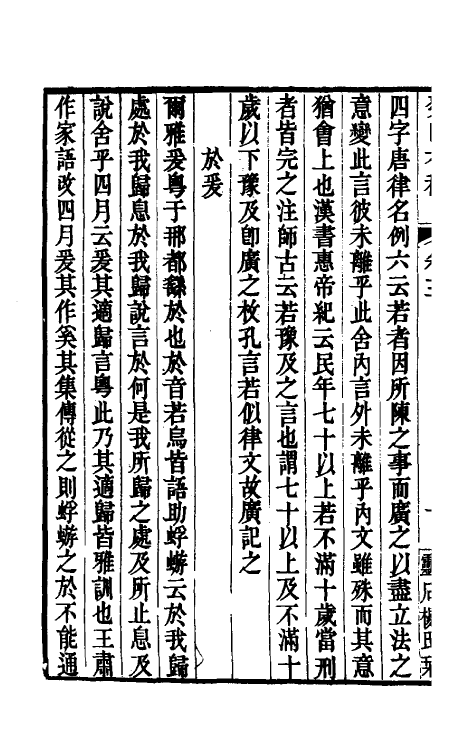 四字唐律名例六云若者因所陳之事而廣之以盡立法之
意變此言彼未離乎此舍內言外未離乎內文雖殊而其意
猶會上也漢書惠帝紀云民年七十以上若不滿十歲當刑
者皆完之注師古云若豫及之言也謂七十以上及不滿十
歲以下豫及卽廣之枚孔言若似律文故廣記之
於爰
爾雅爰粵于那都繇於也於音若烏皆語助蜉蝣云於我歸
處於我歸息於我歸說言於何是我所歸之處及所止息及
說舍乎四月云爰其適歸言粵此乃其適歸皆雅訓也王肅
作家語改四月爰其作奚其集傳從之則蜉蝣之於不能通